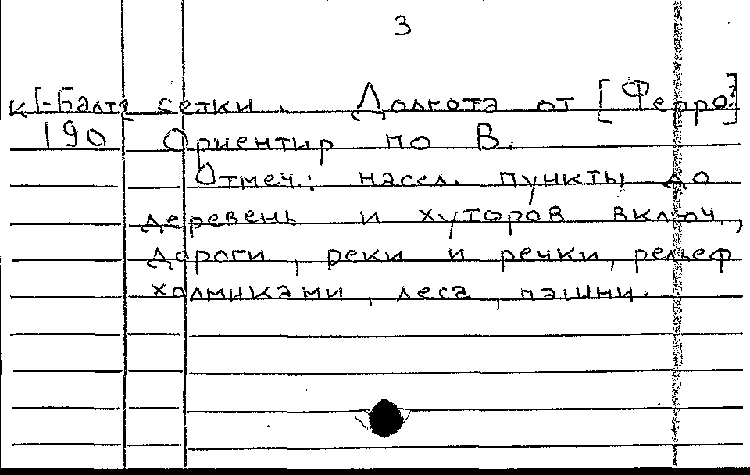 3
К I-Балт сетки. Долгота от [Ферро?]
190 Ориентир по В.
Отмеч.: насел. пункты до
деревень и хуторов включ.,
дороги, реки и речки, рельеф
холмиками, леса, пашни.